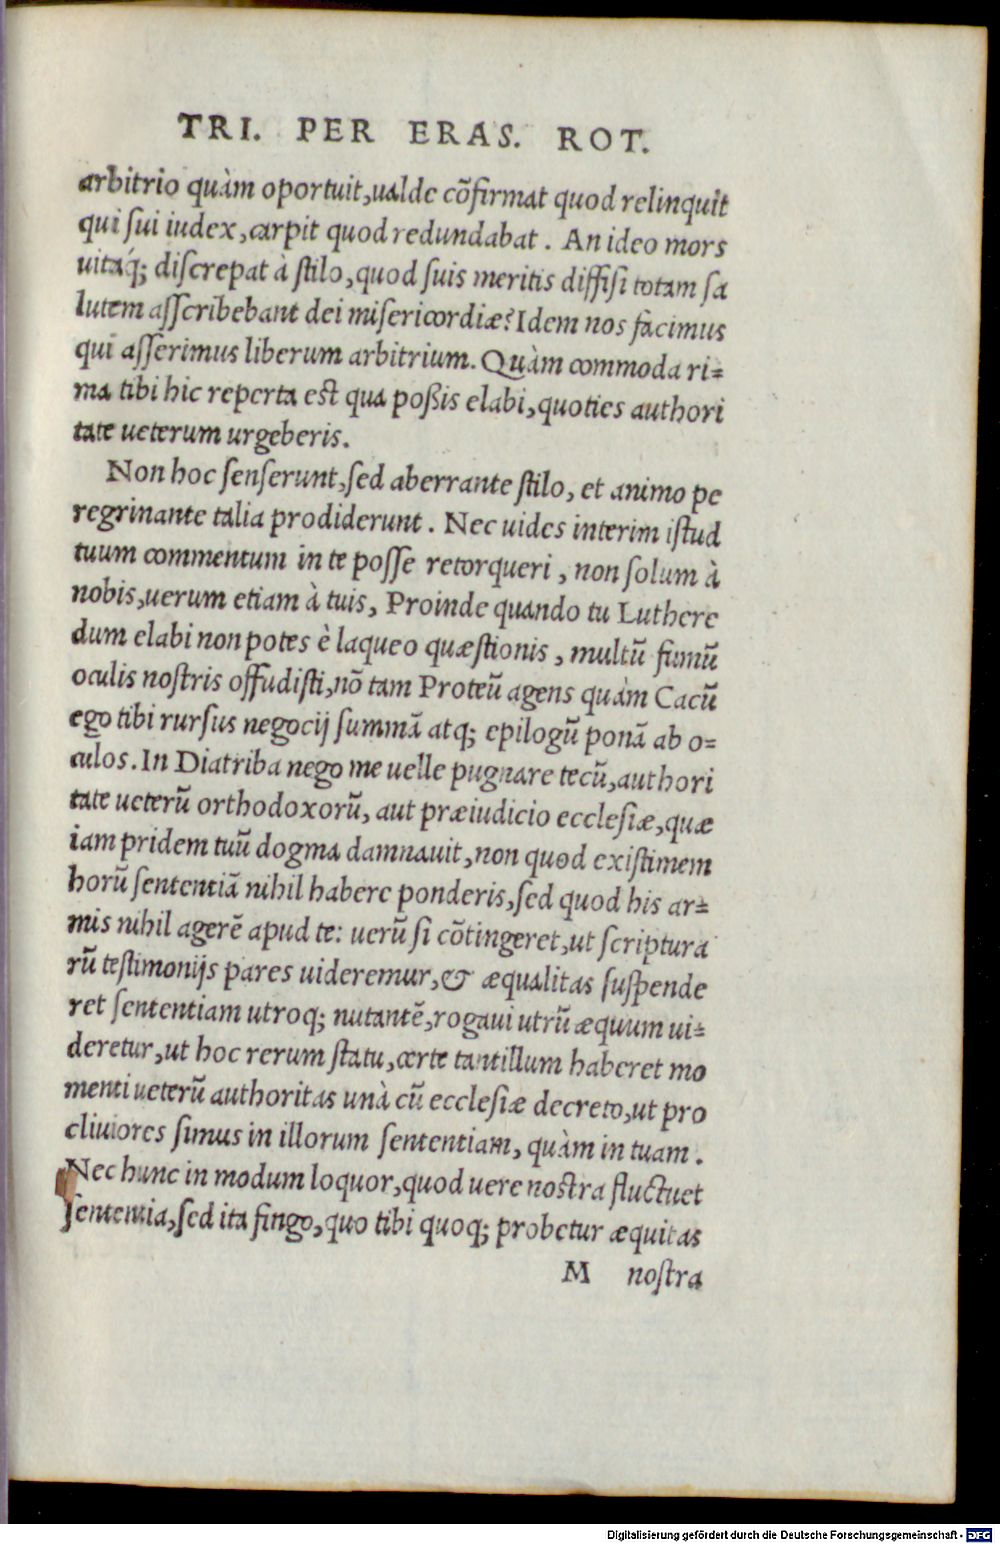 TRI. PER ERAS. ROT.
arbitrio quàm oportuit, ualde cõfirmat quod relinquit
qui sui iudex, carpit quod redundabat. An ideo mors
uitáq; discrepat à stilo, quod suis meritis diffisi totam sa
lutem asscribebant dei misericordiæ? Idem nos facimus
qui asserimus liberum arbitrium. Quàm commoda ri=
ma tibi hic reperta est qua poßis elabi, quoties authori
tate ueterum urgeberis.
Non hoc senserunt, sed aberrante stilo, et animo pe
regrinante talia prodiderunt. Nec uides interim istud
tuum commentum in te posse retorqueri, non solum à
nobis, uerum etiam à tuis, Proinde quando tu Luthere
dum elabi non potes è laqueo quæstionis, multũ fumũ
oculis nostris offudisti, nõ tam Proteũ agens quàm Cacũ
ego tibi rursus negocij summã atq; epilogũ ponã ab o=
culos. In Diatriba nego me uelle pugnare tecũ, authori
tate ueterũ orthodoxorũ, aut præiudicio ecclesiæ, quæ
iam pridem tuũ dogma damnauit, non quod existimem
horũ sententiã nihil habere ponderis, sed quod his ar=
mis nihil agerẽ apud te: uerũ si cõtingeret, ut scriptura
rũ testimonijs pares uideremur, & æqualitas suspende
ret sententiam utroq; nutantẽ, rogaui utrũ æquum ui=
deretur, ut hoc rerum statu, certe tantillum haberet mo
menti ueterũ authoritas unà cũ ecclesiæ decreto, ut pro
cliuiores simus in illorum sententiam, quàm in tuam.
Nec hunc in modum loquor, quod uere nostra fluctuet
sententia, sed ita fingo, quo tibi quoq; probetur æquitas
M nostra
Digitalisierung gefördert durch die Deutsche Forschungsgemeinschaft - DFG